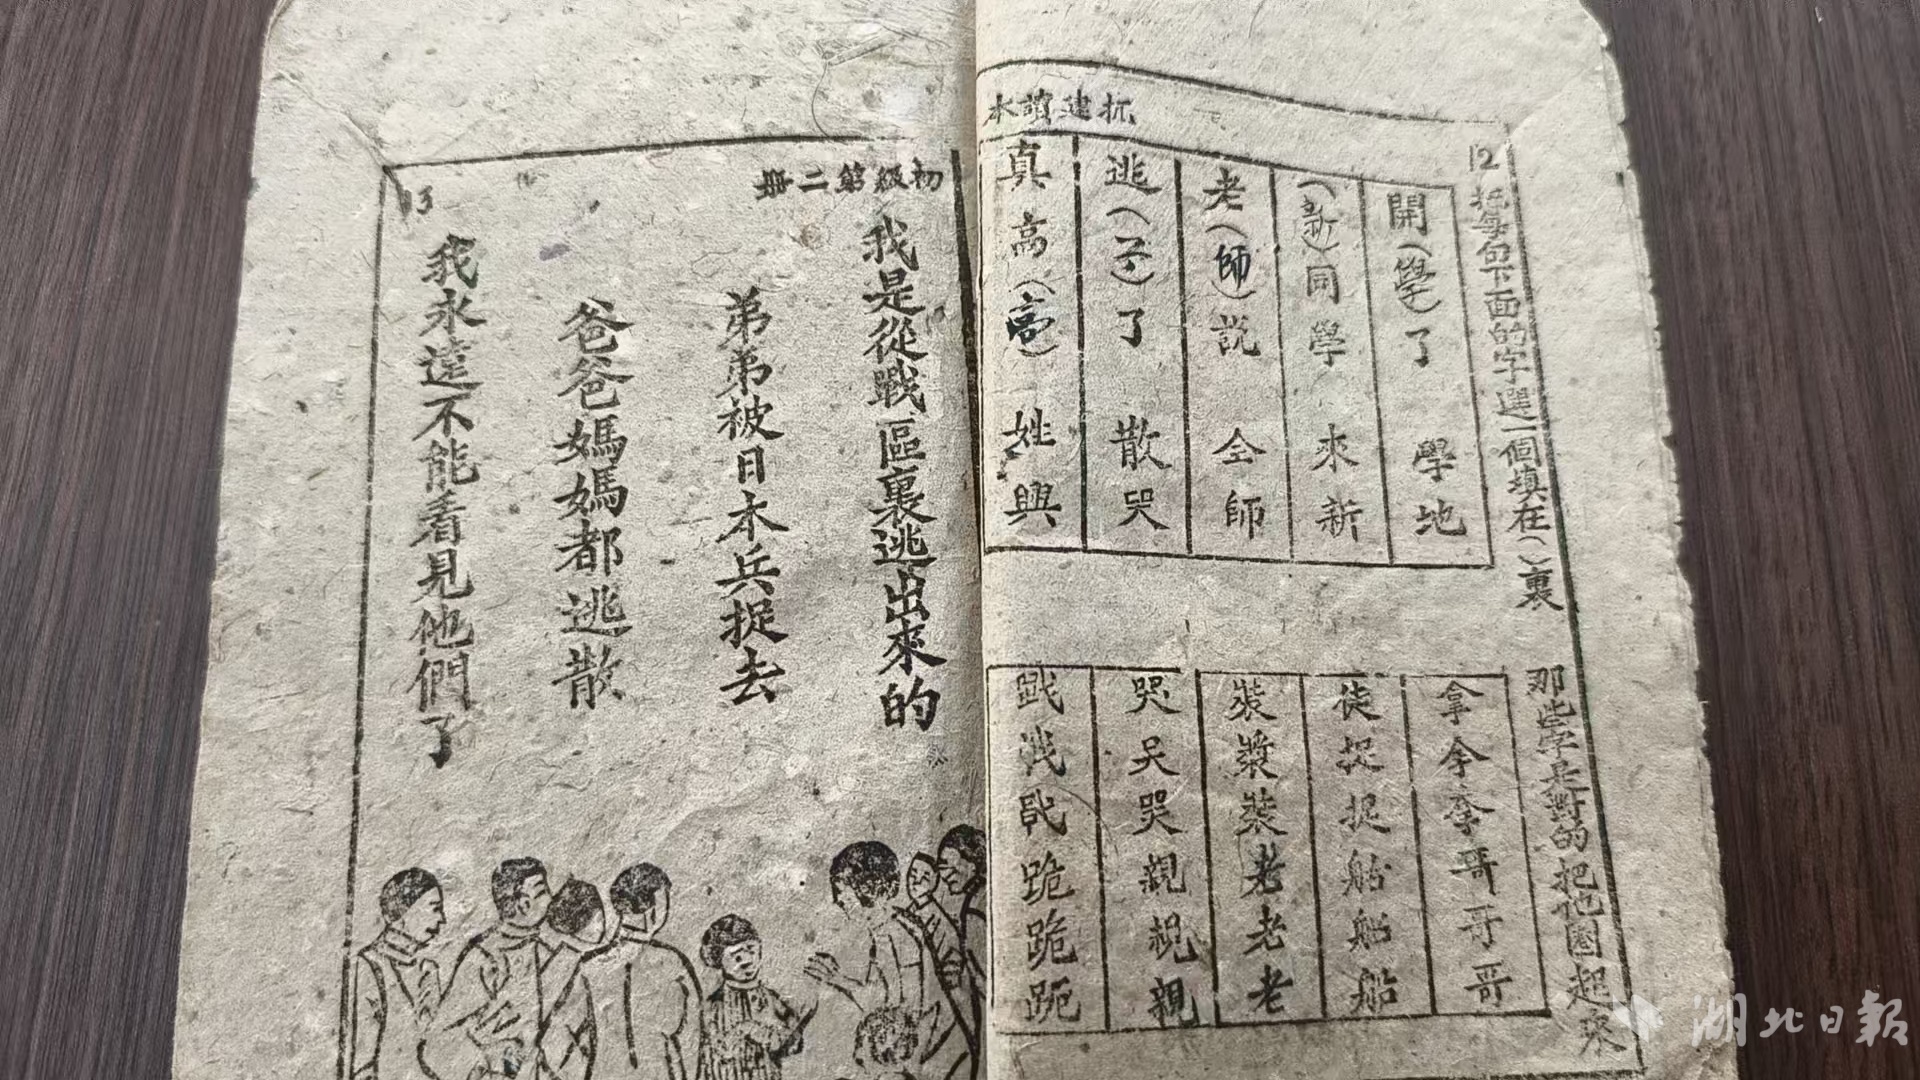 抗建讀本
12
把每句下面的字選一個填在()裏
開(學)了 學地
(新)同學 來新
老(師)說 全師
逃()了 散哭
真高() 姓興
那些字是對的把他圈起來
拿
哥哥
捉
船
裝 裝
老老老
哭 哭親 親
跪跪
初級第二冊
我是從戰區裏逃出來的
弟弟被日本兵捉去
爸爸媽媽都逃散
我永遠不能看見他們了
13
湖北日報